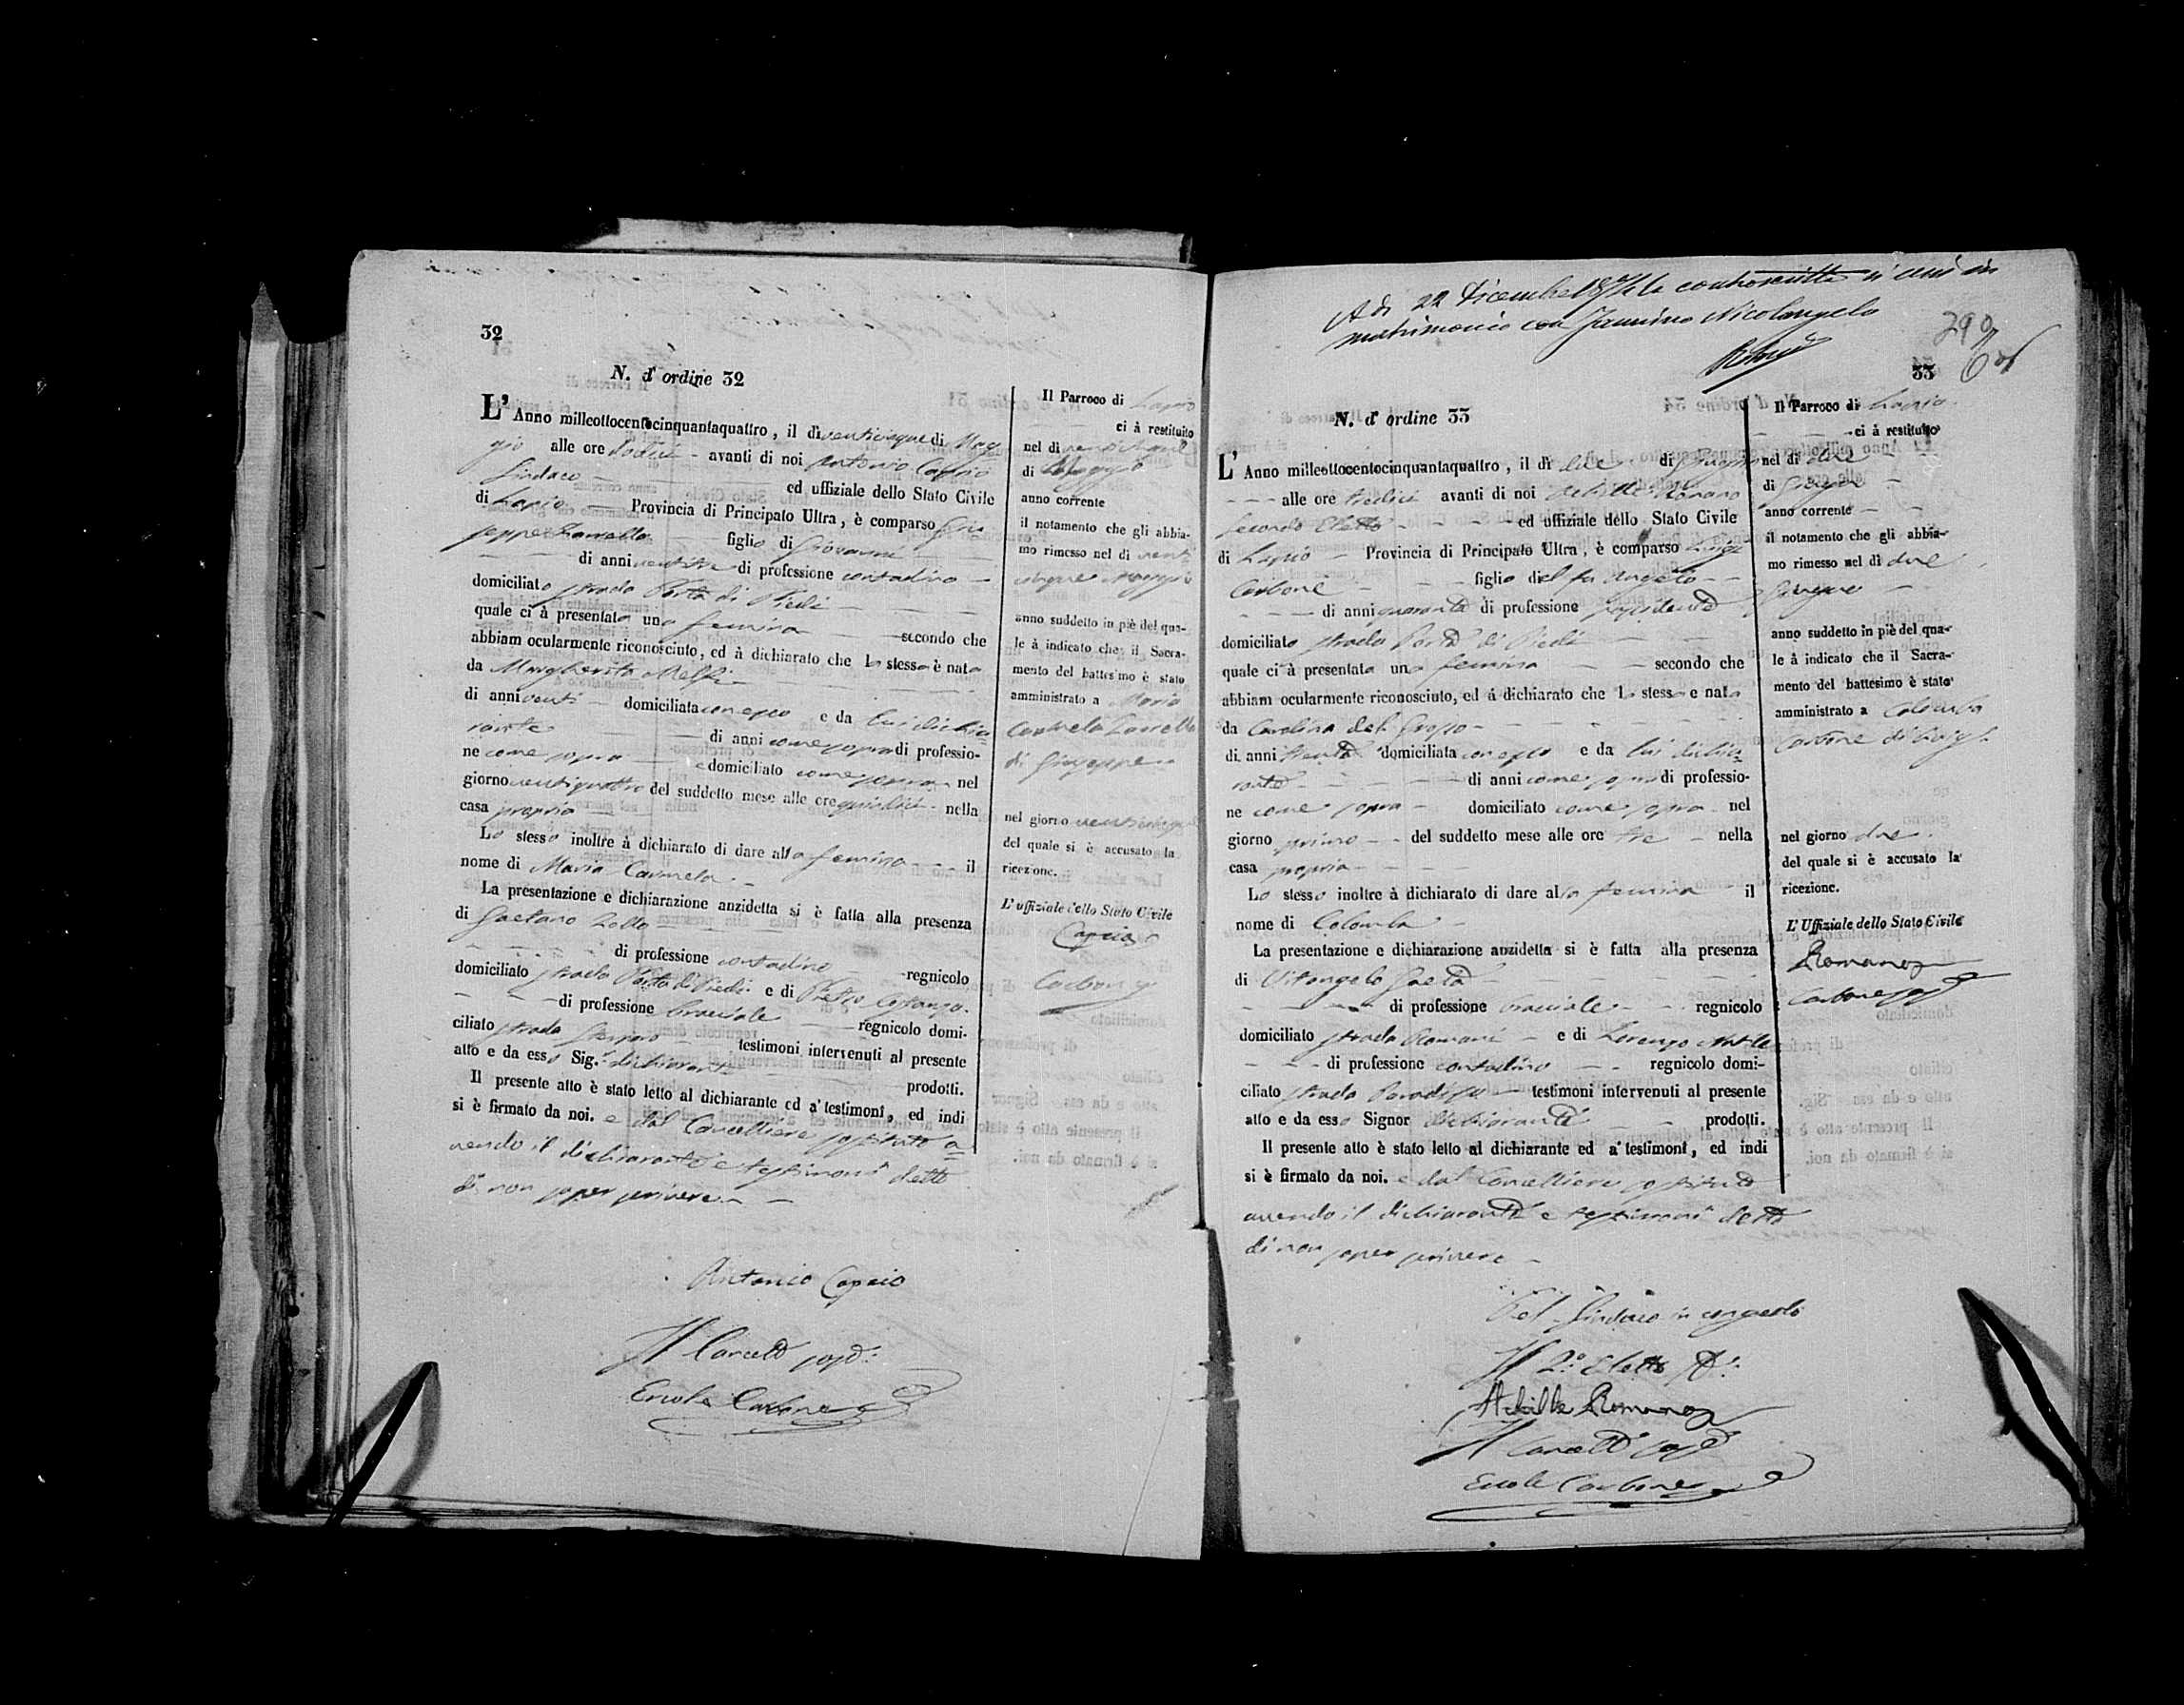 32
N. d' ordine 32
L' Anno millottocentocinquantaquattro , il dì venticinque di Mag
gio alle ore dodici avanti di noi Antonio Capaio
Sindaco ed uffiziale dello Stato Civile
di Lapio Provincia di Principato Ultra , è comparso Giu
seppe figlio di Giovanni
di anni ventitre di professione contadino
domiciliato strada Porta di Piedi
quale ci à presentata una femina secondo che
abbiam ocularmente riconosciuto, ed à dichiarato che la stessa è nata
da Margherita Melfi
di anni venti domiciliata con esso e da lui dichia
rante di anni come sopra di professio-
ne come sopra domiciliato come sopra nel
giorno ventiquattro del suddetto mese alle ore quindici nella
casa propria
Lo stesso inoltre à dichiarato di dare alla femina il
nome di Maria Carmela
La presentazione e dichiarazione anzidetta si è fatta alla presenza
di Gaetano Zollo
di professione contadino regnicolo
domiciliato strada Porta di Piedi e di Pietro
di professione bracciale regnicolo domi-
ciliato strada testimoni intervenuti al presente
atto e da esso Sig.r dichiarante prodotti.
Il presente atto è stato letto al dichiarante ed a' testimoni, ed indi
si è firmato da noi. e dal Cancelliere sostituto a
vendo il dichiarante e testimoni detto
di non saper scrivere
Antonio Capaio
Il Cancell.e sost.o
Ercole Carbone
Il Parroco di Lapio
ci à restituito
nel dì venticinque
di Maggio
anno corrente
il notamento che gli abbia-
mo rimesso nel dì venti
cinque Maggio
anno suddetto in piè del qua-
le à indicato che il Sacra-
mento del battesimo è stato
amministrato a Maria
Carmela
di Giuseppe
nel giorno venticinque
del quale si è accusato la
ricezione.
L' uffiziale dello Stato Civile
Capaio
Carbone
A dì 22 Dicembre la controscritta si unì in
matrimonio con Jannino Nicolangelo
33
N. d' ordine 33
L' Anno milleottocentocinquantaquattro , il dì due di Giugno
alle ore tredici avanti di noi Achille Romano
Secondo Eletto ed uffiziale dello Stato Civile
di Lapio Provincia di Principato Ultra , è comparso Luigi
Carbone figlio del fu Angelo
di anni quaranta di professione possidente
domiciliato strada Porta di Piedi
quale ci à presentata una femina secondo che
abbiam ocularmente riconosciuto, ed à dichiarato che la stessa e nata
da Carolina del Grosso
di anni trenta domiciliata con esso e da lui dichia
rante di anni come sopra di professio-
ne come sopra domiciliato come sopra nel
giorno primo del suddetto mese alle ore tre nella
casa propria
Lo stesso inoltre à dichiarato di dare alla femina il
nome di Colomba
La presentazione e dichiarazione anzidetta si è fatta alla presenza
di Vitangelo Gaeta
di professione bracciale regnicolo
domiciliato strada Romani e di Lorenzo
di professione contadino regnicolo domi-
ciliato strada Paradiso testimoni intervenuti al presente
atto e da esso Signor dichiarante prodotti.
Il presente atto è stato letto al dichiarante ed a' testimoni, ed indi
si è firmato da noi. e dal Cancelliere sostituto
avendo il dichiarante e testimoni detto
di non saper scrivere
Pel Sindaco in congedo
Il 2.o Eletto
Achille Romano
Il Cancell.e sost.o
Ercole Carbone
Il Parroco di Lapio
ci à restituito
nel dì due
di Giugno
anno corrente
il notamento che gli abbia-
mo rimesso nel dì due
Giugno
anno suddetto in piè del qua-
le à indicato che il Sacra-
mento del battesimo è stato
amministrato a Colomba
Carbone di Luigi
nel giorno due
del quale si è accusato la
ricezione.
L' Uffiziale dello Stato Civile
Romano
Carbone sost.o